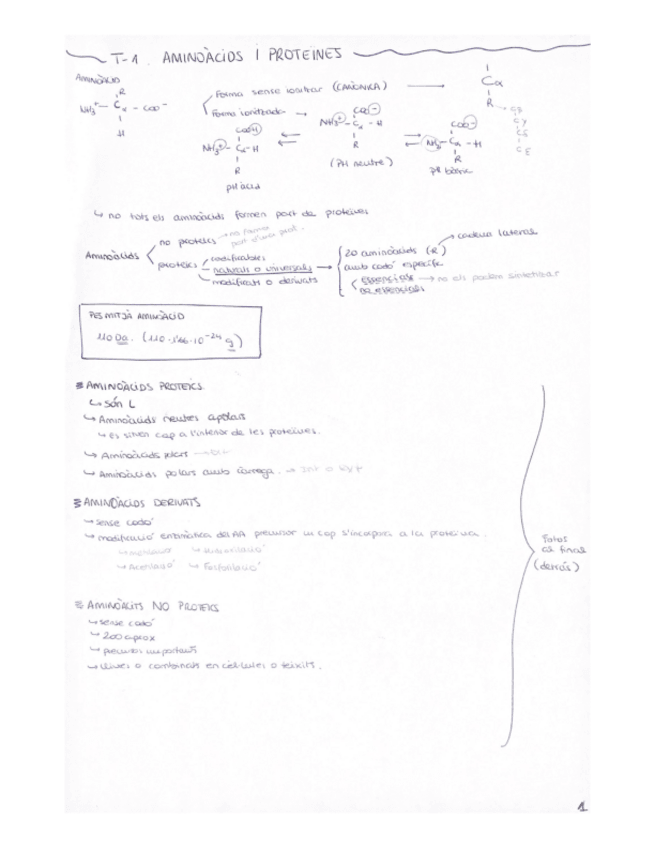 T-1. AMINOÀCIDS I PROTEÏNES
AMINOÀCID
R
NH3+ - Cα - COO-
H
Forma sense ionitzar (CANÒNICA)
Forma ionitzada
COOH
NH3+ - Cα - H
R
pH àcid
COO-
NH3+ - Cα - H
R
(pH neutre)
COO-
NH2 - Cα - H
R
pH bàsic
Cα
R
Cβ
Cγ
Cδ
Cε
↳ no tots els aminoàcids formen part de proteïnes
Aminoàcids
no proteics → no formen part d'una prot.
proteics
codificables
naturals o universals →
modificats o derivats
20 aminoàcids (R) → cadena lateral
amb codó específic
essencials → no els podem sintetitzar
no essencials
PES MITJÀ AMINOÀCID
110 Da. (110·1'66·10-24 g)
AMINOÀCIDS PROTEICS
↳ Són L
↳ Aminoàcids neutres apolars
↳ es situen cap a l'interior de les proteïnes.
↳ Aminoàcids polars
↳ Aminoàcids polars amb càrrega.
AMINOÀCIDS DERIVATS
↳ sense codó
↳ modificació enzimàtica del AA precursor un cop s'incorpora a la proteïna.
↳ Hidroxilació
↳ Acetilació ↳ Fosforilació
AMINOÀCITS NO PROTEICS
↳ sense codó
↳ 200 aprox
↳ precursors importants
↳ lliures o combinats en cèl·lules o teixits.
Fotos
al final
(detrás)
1